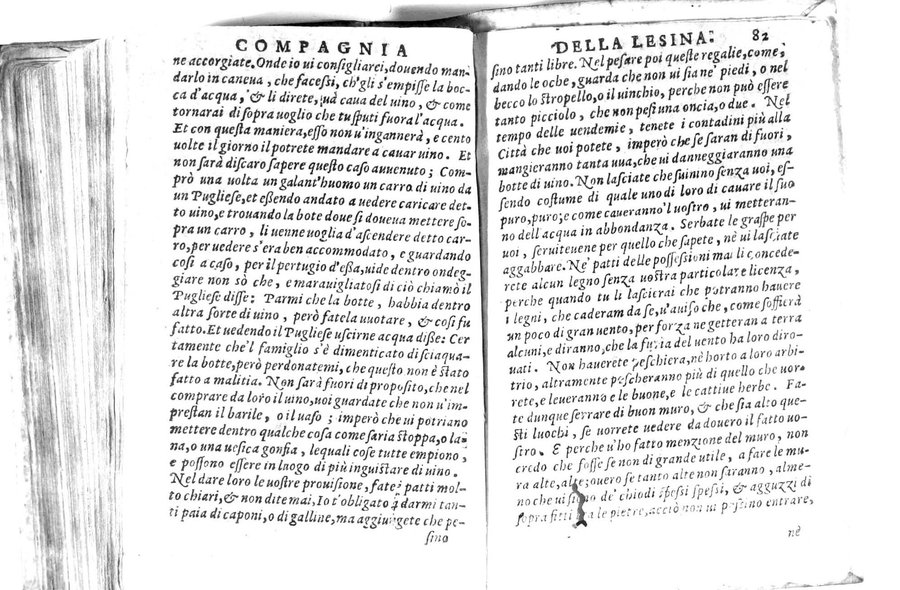 COMPAGNIA
ne accorgiate. Onde io ui consigliarei, douendo man-
darlo in caneua, che facessi, ch'gli s'empisse la boc-
ca d'acqua, & li direte, uà caua del uino, & come
tornarai di sopra uoglio che tu sputi fuora l'acqua.
Et con questa maniera, esso non u'ingannerà, e cento
uolte il giorno il potrete mandare a cauar uino. Et
non sarà discaro sapere questo caso auuenuto; Com-
prò una uolta un galant'huomo un carro di uino da
un Pugliese, et essendo andato a uedere caricare det-
to uino, e trouando la bote doue si doueua mettere so-
pra un carro, li uenne uoglia d'ascendere detto car-
ro, per uedere s'era ben accommodato, e guardando
cosi a caso, per il pertugio d'essa, uide dentro ondeg-
giare non sò che, e marauigliatosi di ciò chiamò il
Pugliese disse: Parmi che la botte, habbia dentro
altra sorte di uino, però fatela uuotare, & cosi fu
fatto. Et uedendo il Pugliese uscirne acqua diße: Cer
tamente che'l famiglio s'è dimenticato di sciaqua-
re la botte, però perdonatemi, che questo non è stato
fatto a malitia. Non sarà fuori di proposito, che nel
comprare da loro il uino, uoi guardate che non u'im-
prestan il barile, o il uaso; imperò che ui potriano
mettere dentro qualche cosa come saria stoppa, o la-
na, o una uesica gonfia, lequali cose tutte empiono,
e possono essere in luogo di più inguistare di uino.
Nel dare loro le uostre prouisione, fate patti mol-
to chiari, & non dite mai, Io t'obligato à darmi tan-
ti paia di caponi, o di galline, ma aggiungete che pe-
sino
DELLA LESINA. 82
sino tanti libre. Nel pesare poi queste regalie, come,
dando le oche, guarda che non ui siano piedi, o nel
becco lo stropello, o il uinchio, perche non può essere
tanto picciolo, che non pesi una oncia, o due. Nel
tempo delle uendemie, tenete i contadini più alla
Città che uoi potete, imperò che se saran di fuori,
mangieranno tanta uua, che ui danneggiaranno una
botte di uino. Non lasciate che suinino senza uoi, es-
sendo costume di quale uno di loro di cauare il suo
puro, puro; e come caueranno'l uostro, ui metteran-
no dell'acqua in abbondanza. Serbate le graspe per
uoi, seruiteuene per quello che sapete, nè ui lasciate
aggabbare. Ne' patti delle possessioni mai li concede-
rete alcun legno senza uostra particolare licenza,
perche quando tu li lascierai che potranno hauere
i legni, che caderam da se, u'auiso che, come soffierà
un poco di gran uento, per forza ne getteran a terra
alcuni, e diranno, che la furia del uento ha loro diro-
uati. Non hauerete peschiera, nè horto a loro arbi-
trio, altramente pescheranno più di quello che uor-
rete, e leueranno e le buone, e le cattiue herbe. Fa-
te dunque serrare di buon muro, & che sia alto que-
sti luochi, se uorrete uedere da douero il fatto uo-
stro. E perche u'ho fatto menzione del muro, non
credo che fosse se non di grande utile, a fare le mu-
ra alte, alte; ouero se tanto alte non saranno, alme-
no che ui siano de' chiodi spessi spessi, & agguzzi di
sopra fitti tra le pietre, acciò non ui possino entrare,
nè